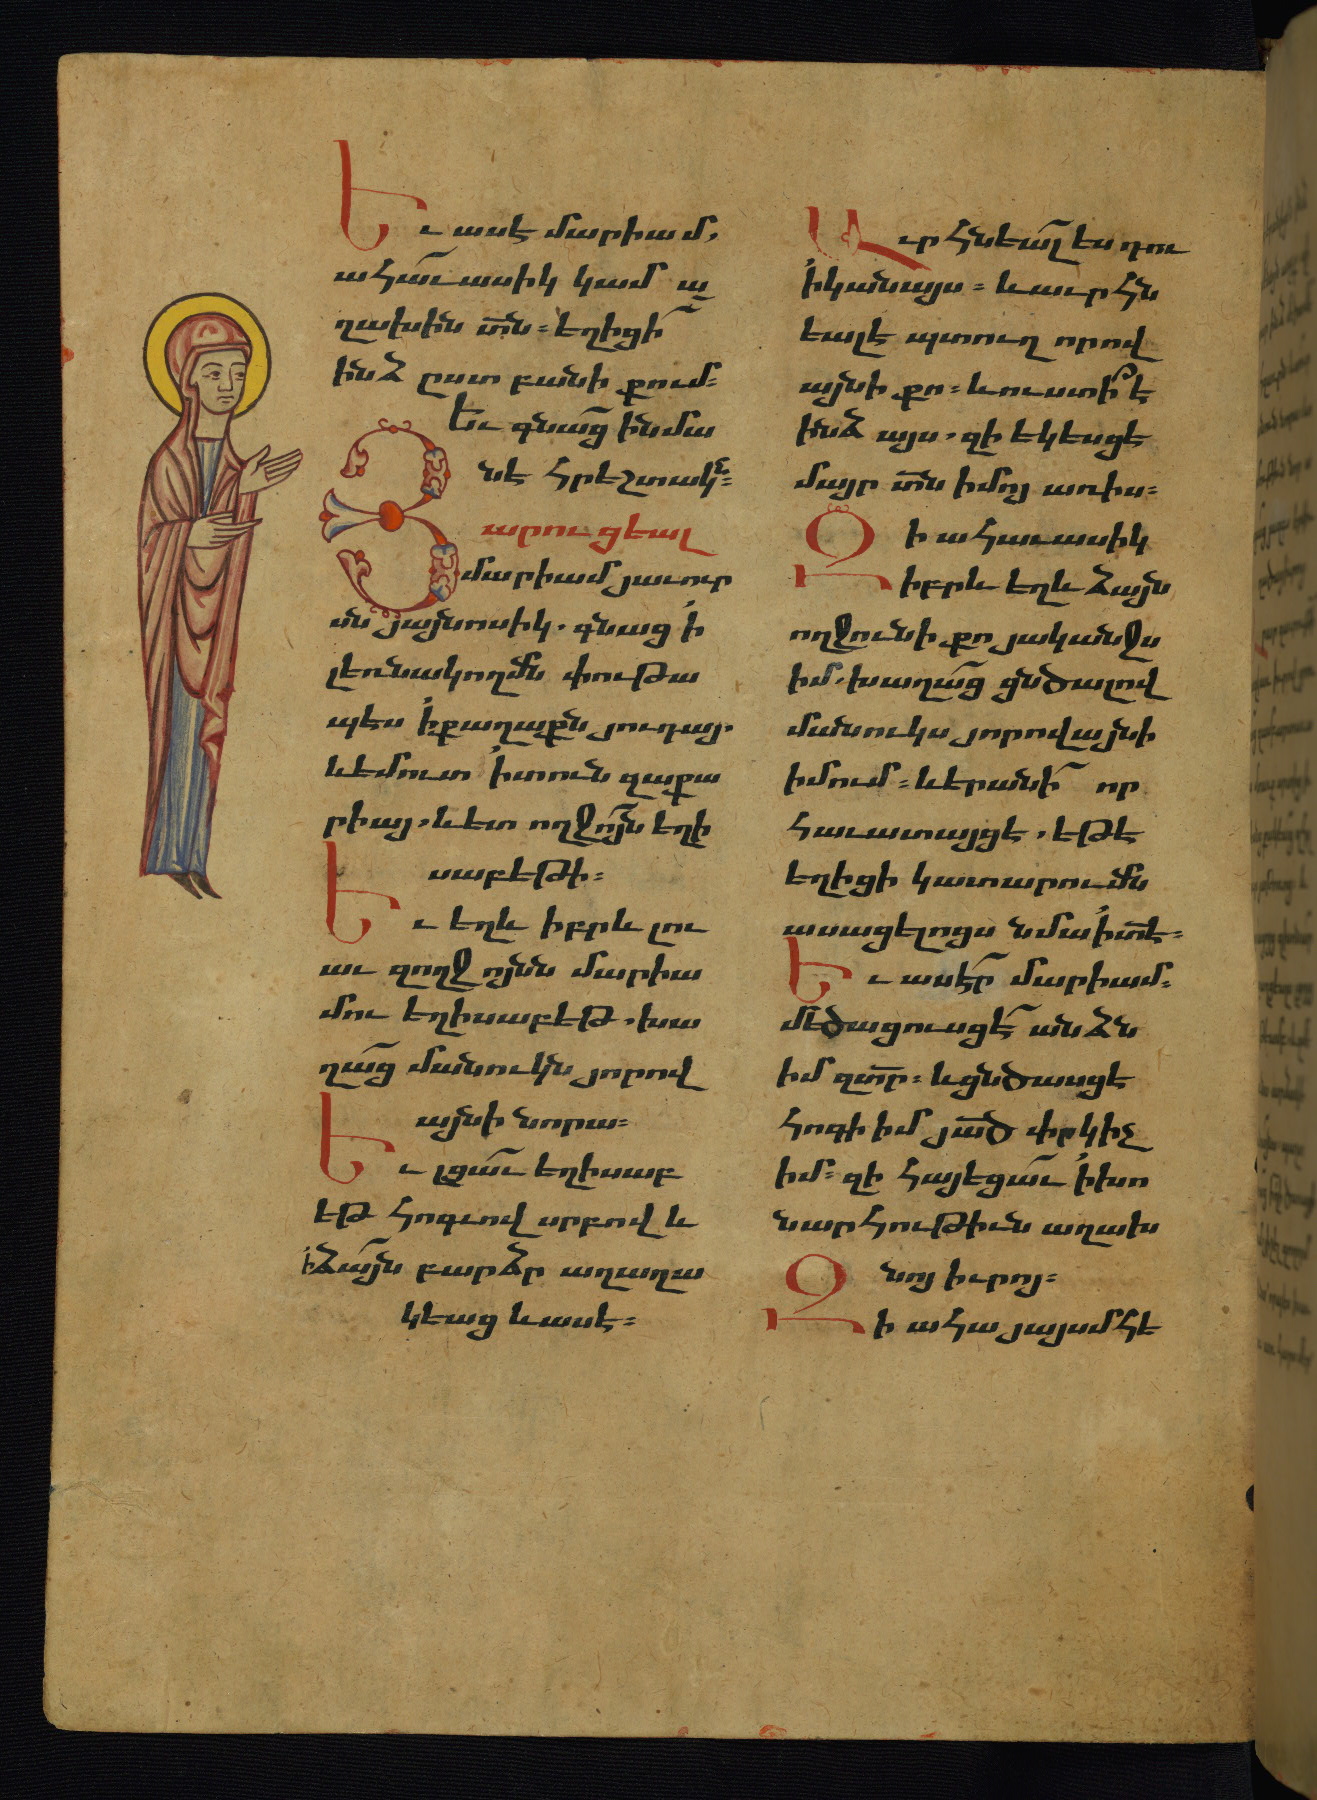 Եւ ասէ մարիամ,
ահաւասիկ կամ ա
ղախին տն. եղիցի
ինձ ըստ բանի քում.
Եւ գնաց ինմա
նէ հրեշտակն.
Յարուցեալ
մարիամ յաւուր
սն յայնոսիկ. գնաց ի
լեռնակողմն փութա
պէս ի քաղաքն յուդայ.
և եմուտ ի տուն զաքա
րիայ. և ետ ողջոյն եղի
սաբեթի.
Եւ եղև իբրև լու
աւ զողջոյնն մարիա
մու եղիսաբեթ. խա
ղաց մանուկն յորով
այնի նորա.
Եւ լցաւ եղիսաբ
եթ հոգւով սրբով և
ի ձայն բարձր աղաղա
կեաց և ասէ.
Աւրհնեալ ես դու
ի կանայս. և աւրհն
եալ է պտուղ որով
այնի քո. և ուստի է
ինձ այս. զի եկեսցէ
մայր տն իմոյ առիս.
Զի ահաւասիկ
իբրև եղև ձայն
ողջունի քո յականջս
իմ. խաղաց ցնծալով
մանուկս յորովայնի
իմում. և երանի որ
հաւատայցէ. եթէ
եղիցի կատարումն
ասացելոցս նմա ի տէ.
Եւ ասէր մարիամ.
մեծացուսցէ անձն
իմ զտր. և ցնծասցէ
հոգի իմ յած փրկիչ
իմ. զի հայեցաւ ի խո
նարհութիւն աղախ
նոյ իւրոյ.
Զի ահա յայսմհէ